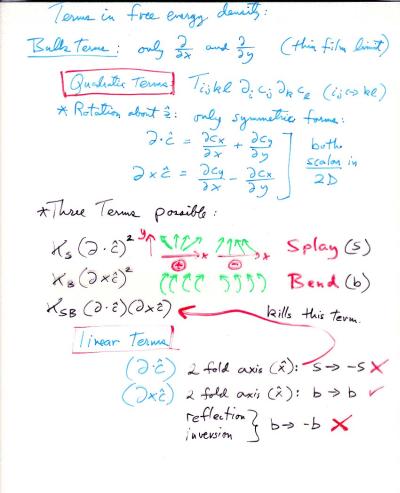 Terms in free energy density:
Bulk Terms: only ∂/∂x and ∂/∂y (thin film limit)
Quadratic Terms Tijkl ∂i cj ∂k cl (ij↔kl)
* Rotation about ẑ: only symmetric forms:
∂·ĉ = ∂cx/∂x + ∂cy/∂y
∂×ĉ = ∂cy/∂x - ∂cx/∂y
both scalar in 2D
* Three Terms possible:
Ks (∂·ĉ)² y x ⊕ ⊖ x Splay (s)
KB (∂×ĉ)² Bend (b)
KSB (∂·ĉ)(∂×ĉ) kills this term.
linear Terms
(∂·ĉ) 2 fold axis (x̂): s → -s ✗
(∂×ĉ) 2 fold axis (x̂): b → b ✓
reflection
inversion } b → -b ✗